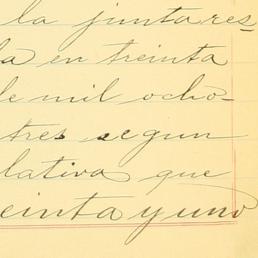 la junta res-
la en treinta
de mil ocho-
tres segun
lativa que
einta y uno